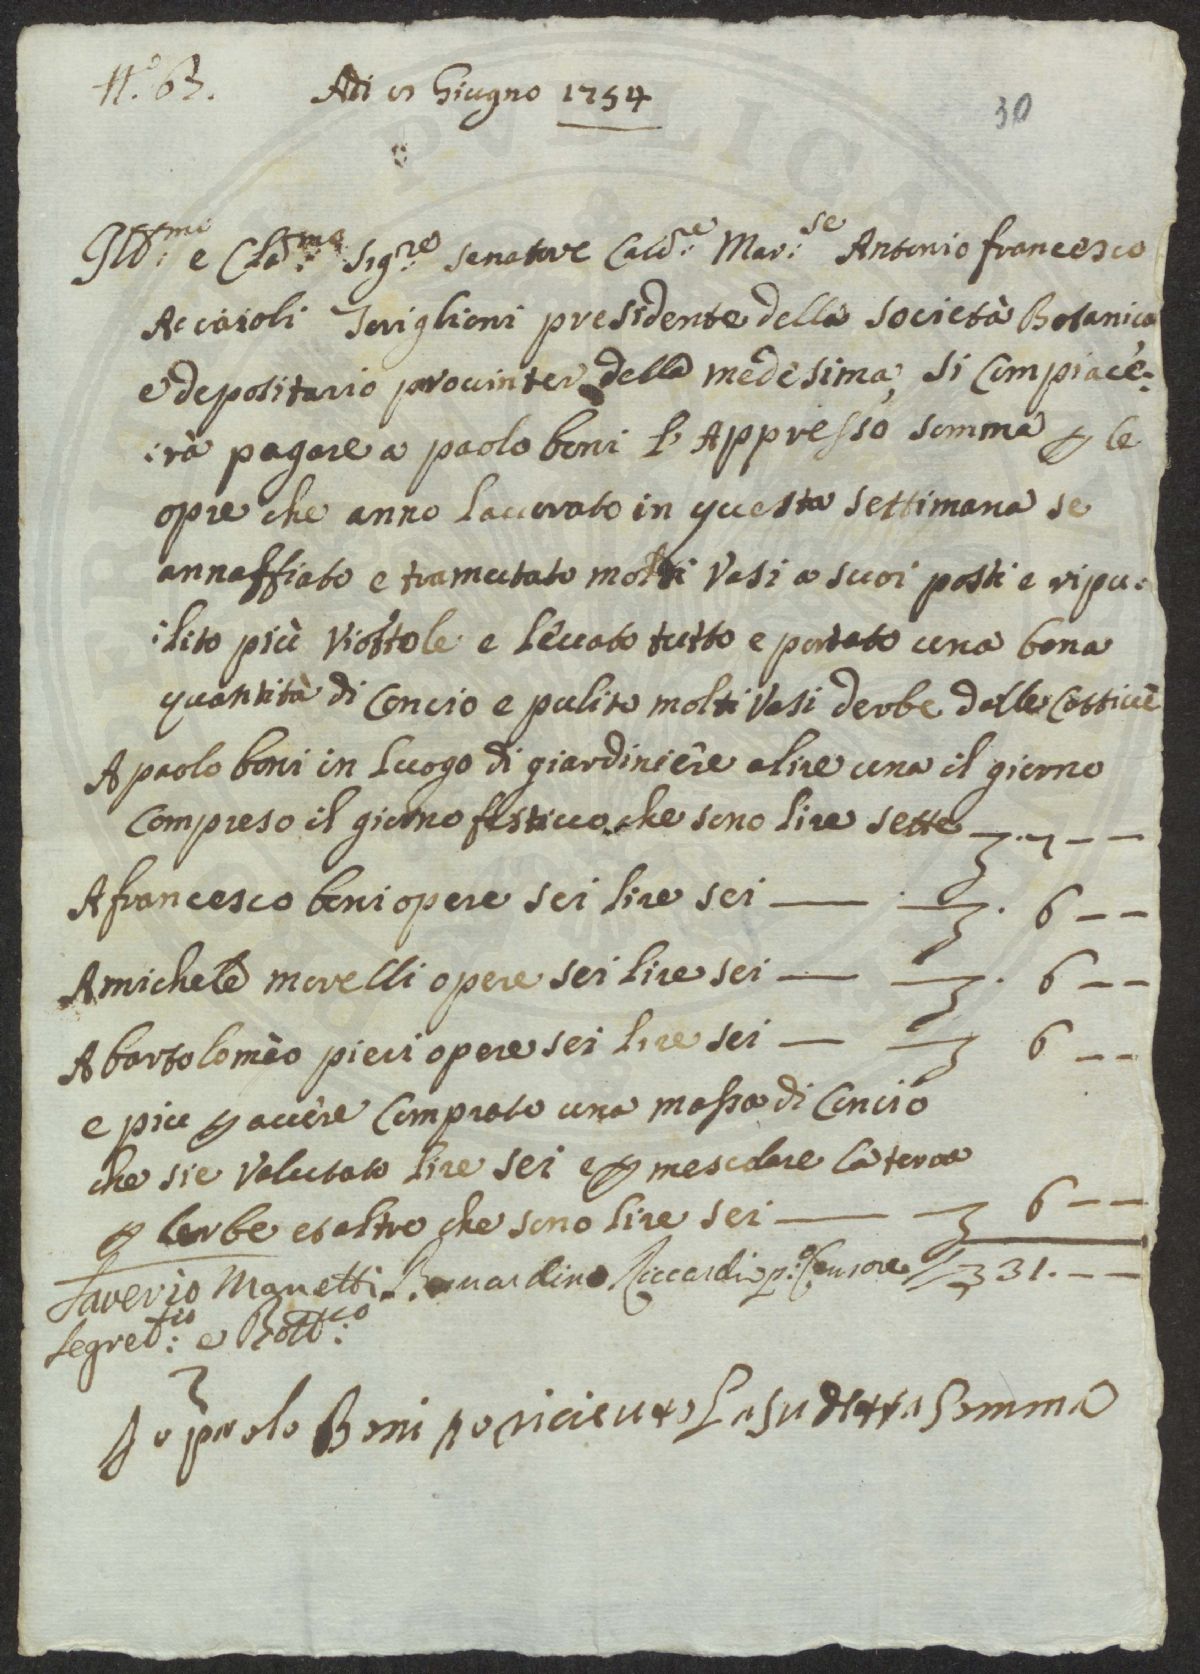 N.º 63. Adi Giugno 1754
30
Ill:mo e Cla:mo Sig:re Senatore Cav:re Mar:se Antonio francesco
Acciaioli Toriglioni presidente della società Botanica
e depositario provinter della medesima, si Compiace:
:rà pagare a paolo boni l'Appresso somma p le
opre che anno lauorato in questa settimana se
annaffiato e tramutato molti Vasi a suoi posti e ripu:
:lito più Viottole e leuato tutto e portato una bona
quantità di Concio e pulito molti Vasi derbe dalle Cattiue
A paolo boni in luogo di giardiniere alire una il giorno
Compreso il giorno festiuo che sono lire sette 7 – –
A francesco boni opere sei lire sei — 6 – –
A michele morelli opere sei lire sei — 6 – –
A bartolomeo pieri opere sei lire sei — 6 – –
e piu p auere Comprato una massa di Concio
che sie Valutato lire sei e p mescolare la terra
p lerbe et altro che sono lire sei — 6 – –
Saverio Manetti Bernardino Riccardi p:º Censore 31. – –
Segret:io e Bott:co
Io paolo Boni o riceuuto La su detta Somma